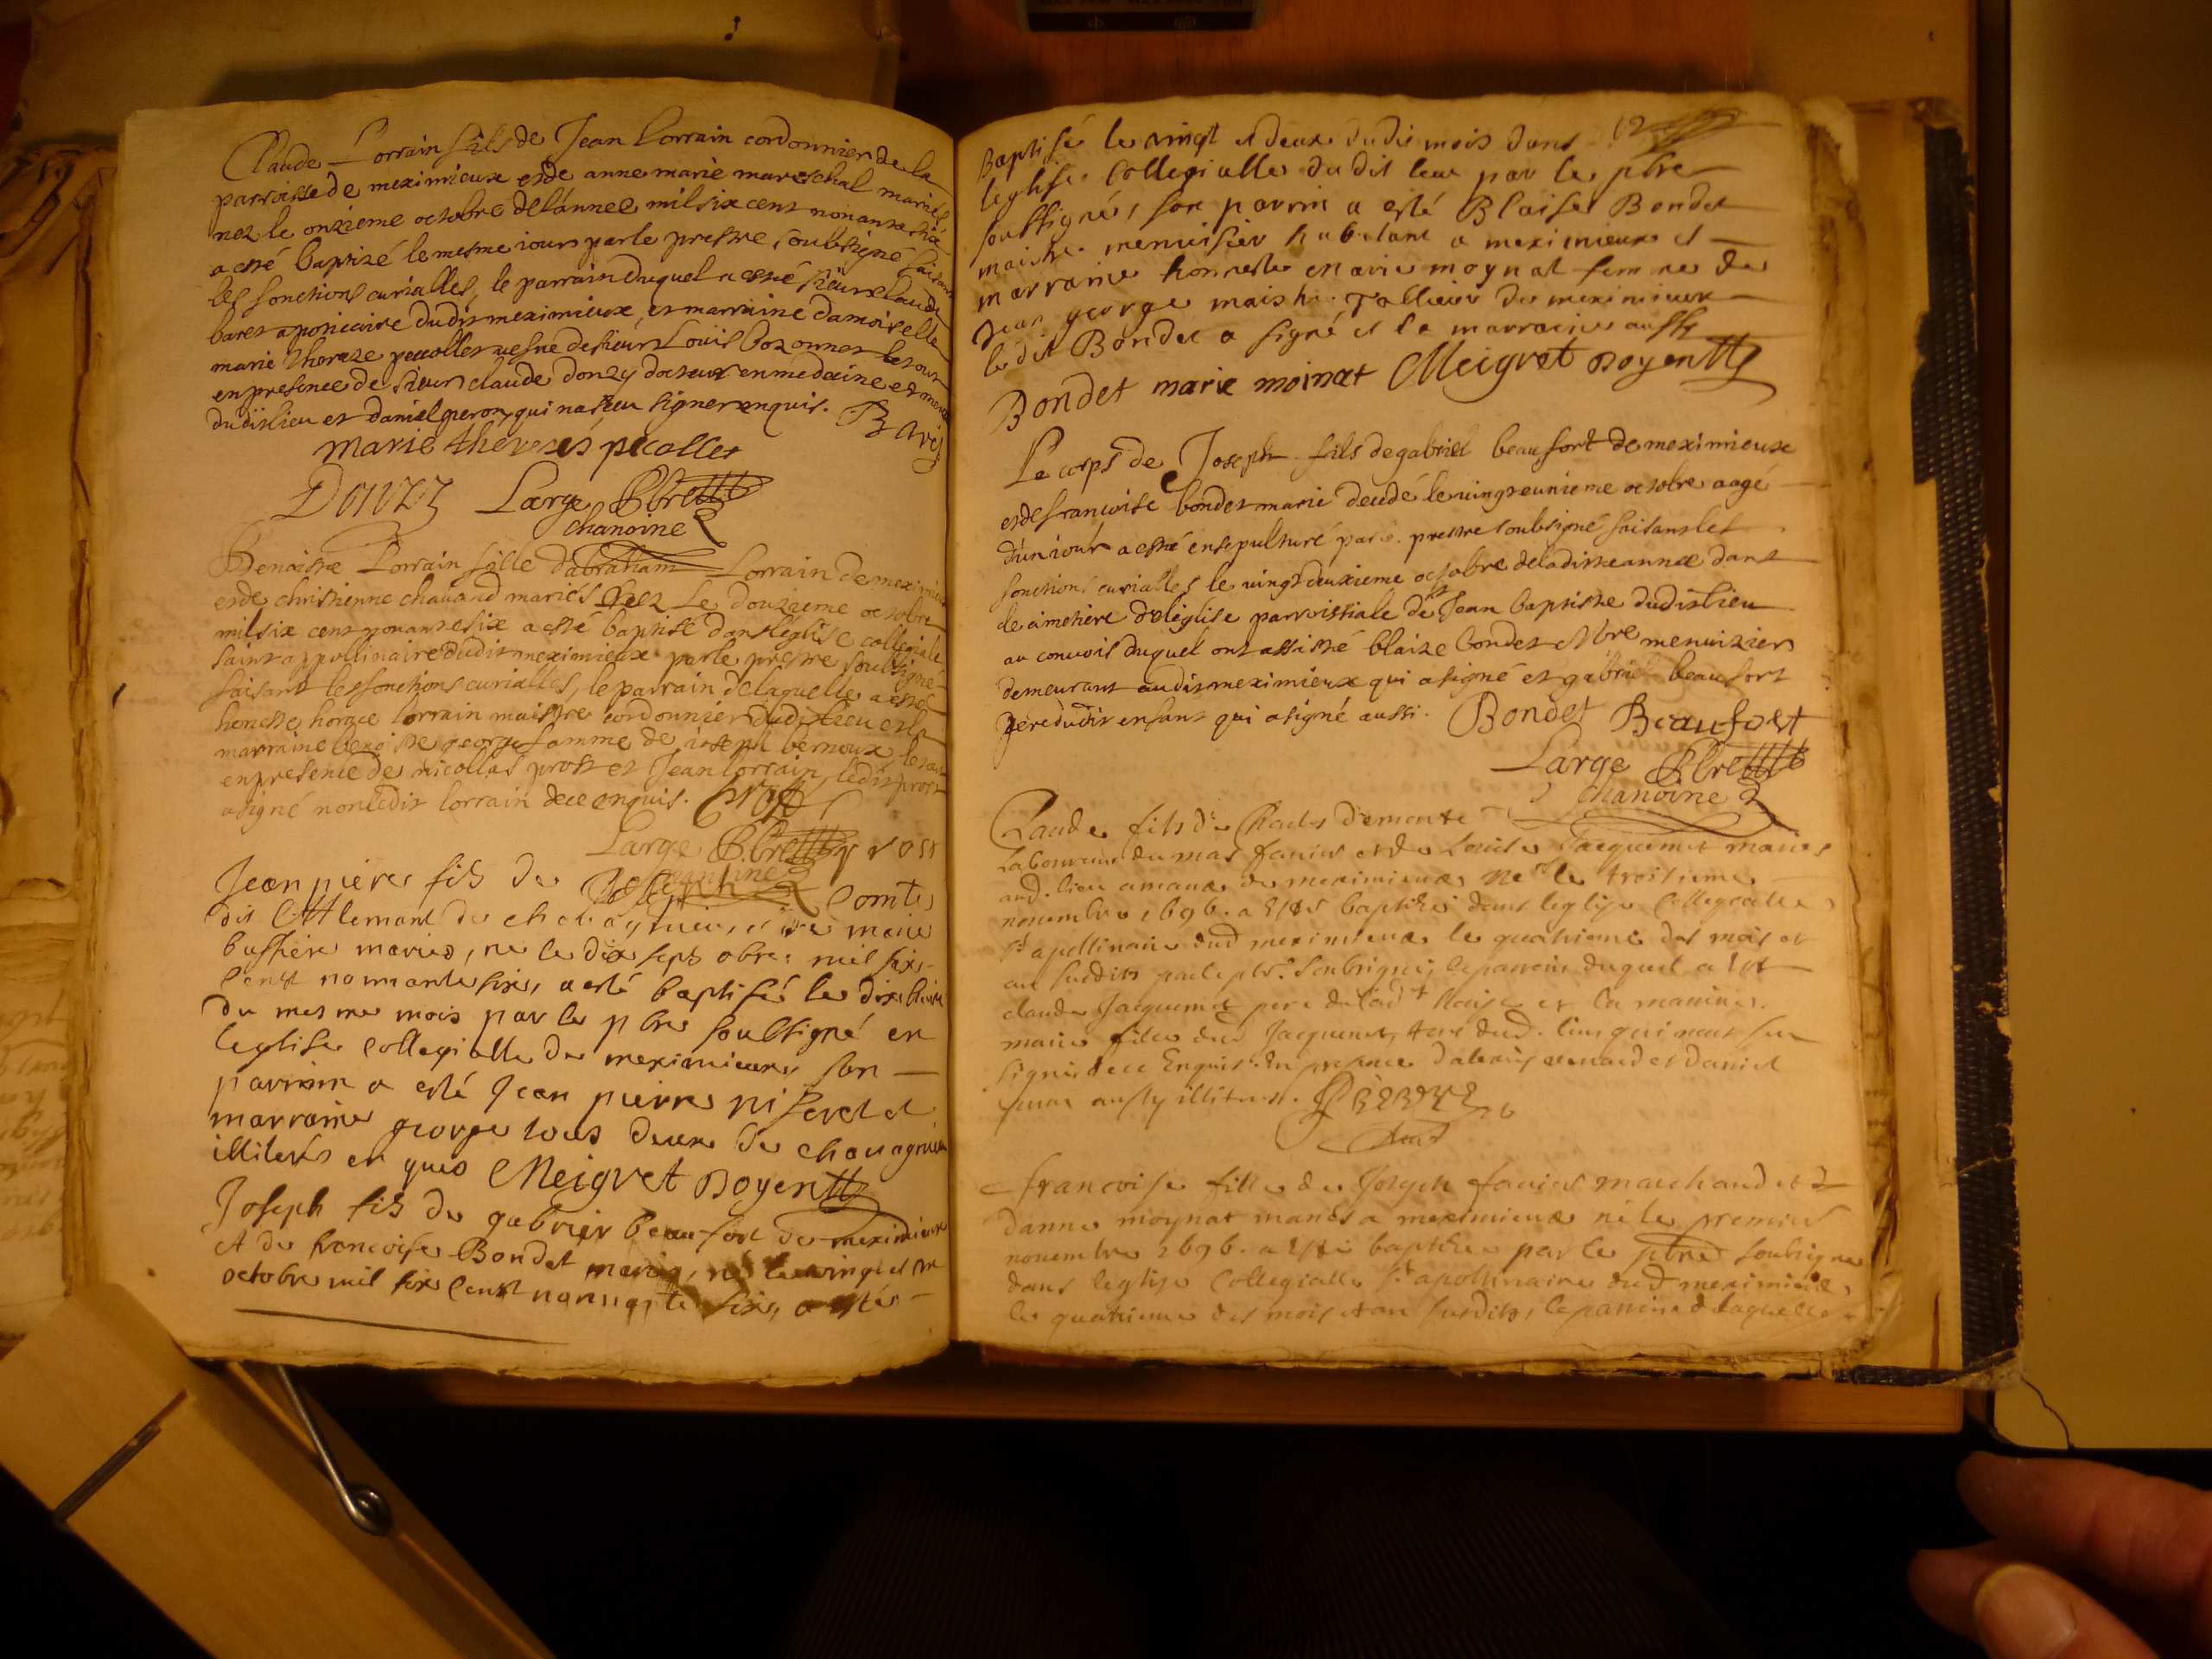 Claude Lorrain fils de Jean Lorrain cordonnier de la
parroisse de meximieux et de anne marie mareschal mariés
nez le onzieme octobre de lannee mil six cent nonante six
a esté baptizé le mesme iour par le prestre soubsigné faisant
les fonctions curialles, le parrain duquel a esté sieur claude
baret apoticaire dudit meximieux, et marraine damoiselle
marie therese pecollet vefue de sieur Louis bozonnet le tout
en presence de sieur claude donzy docteur en medecine et
dudit lieu et daniel peron qui na sceu signer enquis. Baret
marie thereses pecollet
Donzy Large Pbre
chanoine
Benoiste Lorrain fille dabraham Lorrain de meximieux
et de christienne chauand mariés nez Le douzieme octobre
mil six cent nonante six a esté baptisé dans léglise collegiale
saint appollinaire dudit meximieux par le prestre soubsigné
faisant les fonctions curialles, le parrain de laquelle a esté
honeste horace lorrain maistre cordonnier dudit lieu et la
marraine benoiste george famme de ioseph bernoux, le tout
en presence de nicollas prost et Jean lorrain, ledit prost
a signé non ledit lorrain de ce enquis. Prost
Large Pbre prost
chanoine
Jean piere fils de Joseph Comte
dit Allemant de chauagnieu, et de marie
bussiere mariés, ne le dix sept obre mil six
Cent nonnante six, a esté baptisé le dix huit
du mesme mois par le pbre soussigné en
leglise Collegialle de meximieux son
parrain a esté Jean pierre niseret et
marraine george tous deux de chauagnieu
illiterés en quis Meigret Doyen
Joseph fils de gabriel beaufort de meximieux
et de francoise Bondet mariés, né le vingt et un
octobre mil six Cent nonnante six, a esté
Baptisé le vingt et deux dudit mois dans 12
leglise Collegialle dudit lieu par le pbre
soussigné, son parrin a esté Blaise Bondet
maistre menuisier habitant a meximieux et
marraine honneste marie moynat femme de
Jean george maistre Tallieur de meximieux
le dit Bondet a signé et la marraine aussy
Bondet marie moinat Meigret Doyen
Le corps de Joseph fils de gabriel beaufort de meximieux
et de francoise bondet marié decedé le vingt eunieme octobre aagé
dun iour a esté ensepulturé par le prestre soubsigné faisant les
fonctions curialles le vingt deuxieme octobre de la ditte année dans
le cimetiere de léglise parroissiale de st Jean baptiste dudit lieu
au conuois duquel ont assisté blaize bondet Mre menuizier
demeurant audit meximieux qui a signé et gabriel beaufort
pere dudit enfant qui a signé aussi. Bondet Beaufort
Large Pbre
chanoine
Claude fils de Charles demonte
Laboureur du mas fanier et de Louise Jacquemet maries
aud. lieu amans de meximieux né le troisieme
nouembre 1696. a esté baptizé dans leglise Collegialle
st apollinaire dud meximieux le quatrieme des mois et
an susdits par le pbre soubsigné, le parrain duquel a esté
claude Jacquemet pere de lad Louise et la marraine
marie fille dud Jacquemet, dud. lieu qui nont sceu
signer de ce Enquis. En presence et Daniel
peron aussy illiteres.
francoise fille de Joseph fanier marchand et d
danne moynat mariés a meximieux né le premier
nouembre 1696. a esté baptizée par le pbre soubsigné
dans leglise Collegialle st apollinaire dud meximieux
le quatrieme des mois et an susdits, le parrain de laquelle